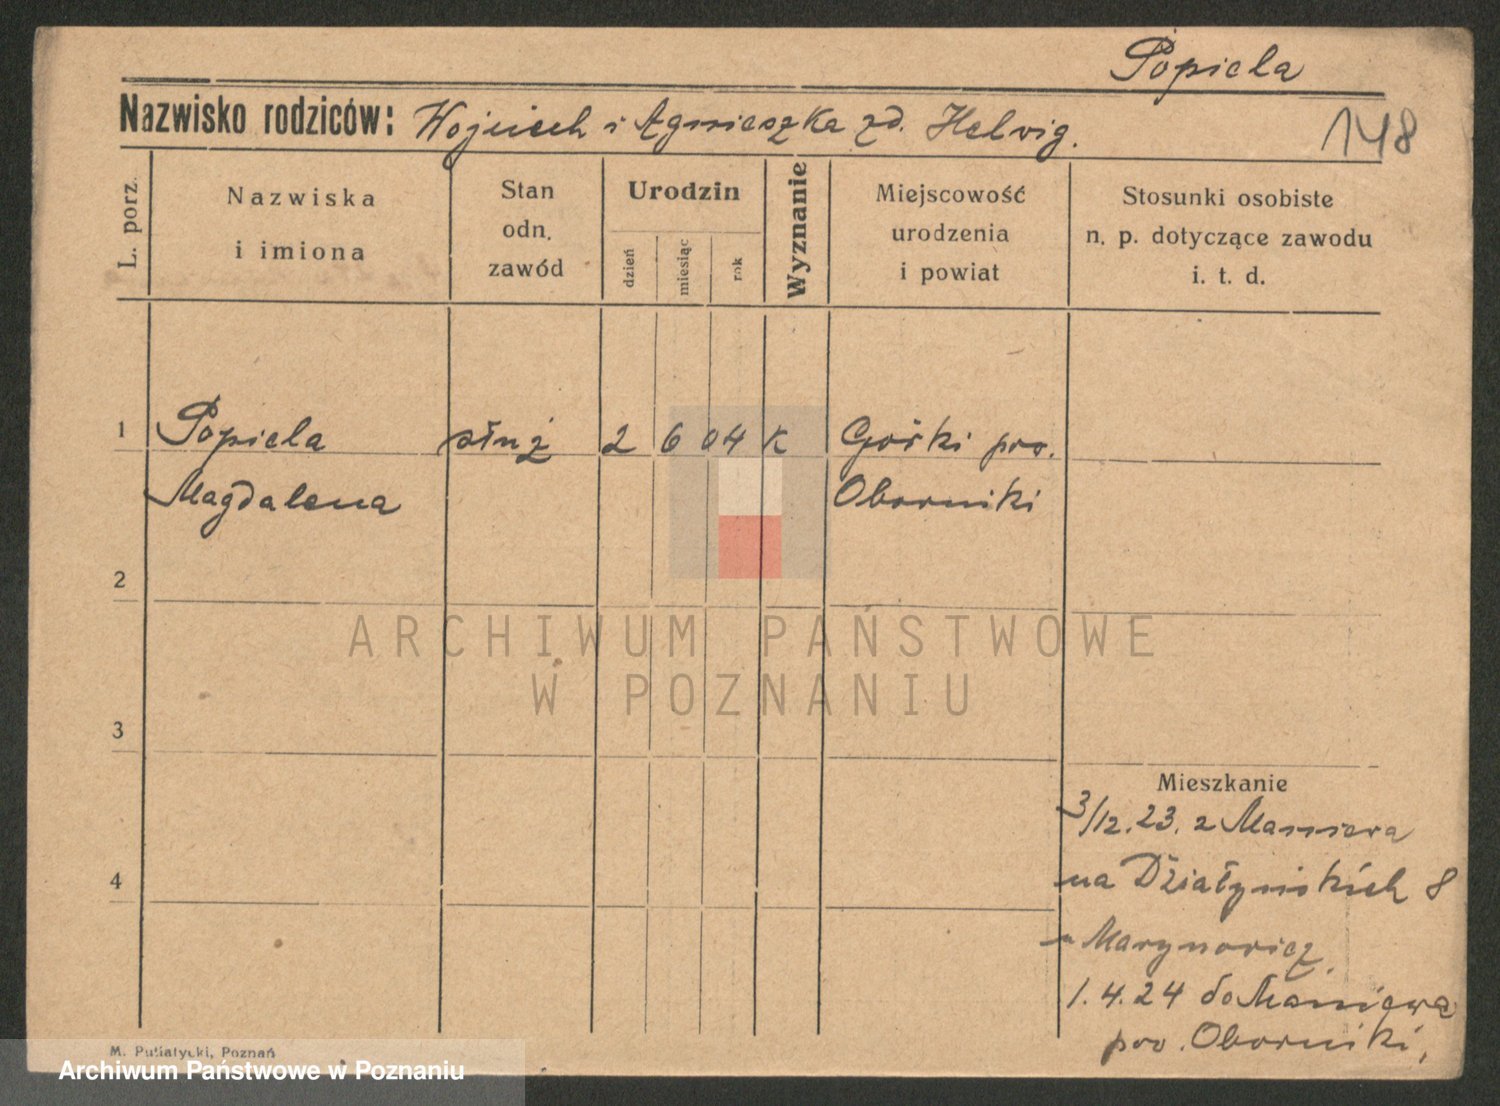 Popiela
Nazwisko rodziców: Wojciech i Agnieszka zd. Helwig.
148
L. porz.
Nazwiska
i imiona
Stan
odn.
zawód
Urodzin
dzień
miesiąc
rok
Wyznanie
Miejscowość
urodzenia
i powiat
Stosunki osobiste
n. p. dotyczące zawodu
i. t. d.
1 Popiela służ 2 6 04 K Górki pow.
Magdalena Oborniki
2
ARCHIWUM PAŃSTWOWE
W POZNANIU
3
Mieszkanie
3/12.23. z Maniewa
4
na Działyńskich 8
u Marynowicz
1.4.24 do Maniewa
pow. Oborniki,
M. Putiatycki, Poznań
Archiwum Państwowe w Poznaniu